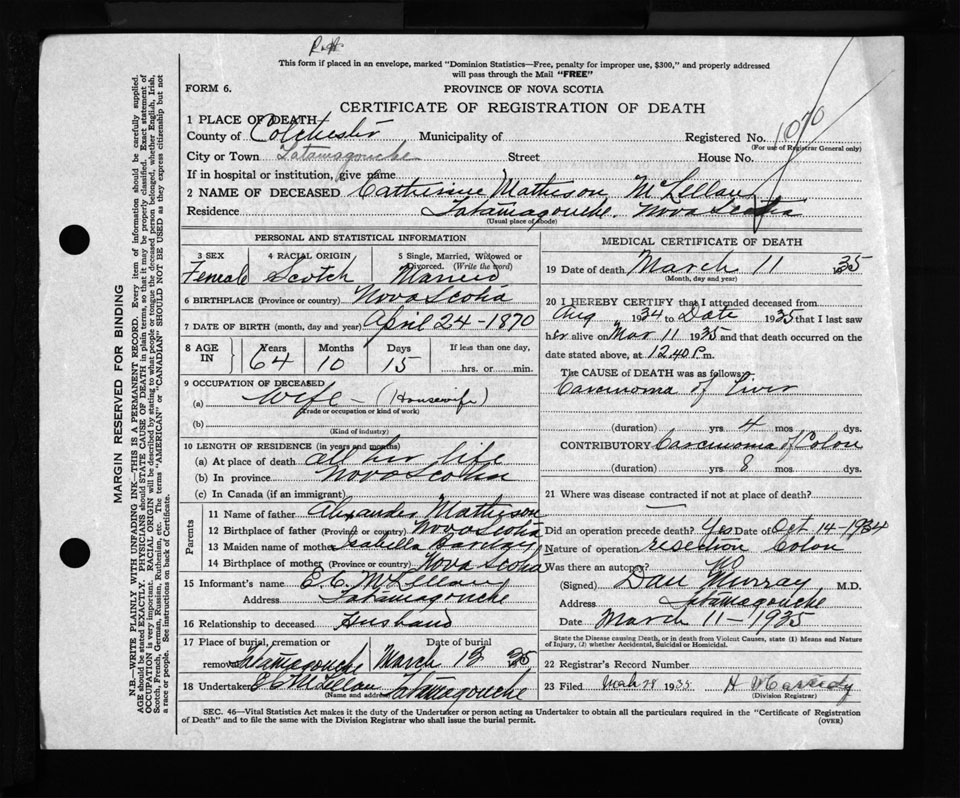 This form if placed in an envelope, marked "Dominion Statistics—Free, penalty for improper use, $300," and properly addressed
will pass through the Mail "FREE"
FORM 6.
PROVINCE OF NOVA SCOTIA
CERTIFICATE OF REGISTRATION OF DEATH
1 PLACE OF DEATH—
County of Colchester Municipality of Registered No. 1070
(For use of Registrar General only)
City or Town Tatamagouche Street House No.
If in hospital or institution, give name
2 NAME OF DECEASED Catherine Mathison McLellan
Residence Tatamagouche, Nova Scotia
(Usual place of abode)
PERSONAL AND STATISTICAL INFORMATION
3 SEX 4 RACIAL ORIGIN 5 Single, Married, Widowed or Divorced. (Write the word)
Female Scotch Married
6 BIRTHPLACE (Province or country) Nova Scotia
7 DATE OF BIRTH (month, day and year) April 24-1870
8 AGE IN Years Months Days If less than one day,
64 10 15 hrs. or min.
9 OCCUPATION OF DECEASED
(a) Wife - (Housewife)
(Trade or occupation or kind of work)
(b)
(Kind of industry)
10 LENGTH OF RESIDENCE (in years and months)
(a) At place of death all her life
(b) In province Nova Scotia
(c) In Canada (if an immigrant)
Parents
11 Name of father Alexander Mathison
12 Birthplace of father (Province or country) Nova Scotia
13 Maiden name of mother Isabella Barclay
14 Birthplace of mother (Province or country) Nova Scotia
15 Informant's name E. C. McLellan
Address Tatamagouche
16 Relationship to deceased Husband
17 Place of burial, cremation or removal Tatamagouche Date of burial March 13 1935
18 Undertaker E C McLellan Tatamagouche
(Name and address)
MEDICAL CERTIFICATE OF DEATH
19 Date of death March 11 1935
(Month, day and year)
20 I HEREBY CERTIFY that I attended deceased from
Aug 1934 to Date 1935 that I last saw
her alive on Mar 11 1935 and that death occurred on the
date stated above, at 12.40 P.m.
The CAUSE of DEATH was as follows:
Carcinoma of Liver
(duration) yrs. 4 mos. dys.
CONTRIBUTORY Carcinoma of Colon
(duration) yrs. 8 mos. dys.
21 Where was disease contracted if not at place of death?
Did an operation precede death? Yes Date of Oct 14-1934
Nature of operation Resection Colon
Was there an autopsy? No
(Signed) Dan Murray M.D.
Address Tatamagouche
Date March 11-1935
State the Disease causing Death, or in death from Violent Causes, state (1) Means and Nature
of Injury, (2) whether Accidental, Suicidal or Homicidal.
22 Registrar's Record Number
23 Filed Mch 28 1935
(Division Registrar)
SEC. 46—Vital Statistics Act makes it the duty of the Undertaker or person acting as Undertaker to obtain all the particulars required in the "Certificate of Registration
of Death" and to file the same with the Division Registrar who shall issue the burial permit.
(OVER)
MARGIN RESERVED FOR BINDING
N.B.—WRITE PLAINLY WITH UNFADING INK—THIS IS A PERMANENT RECORD. Every item of information should be carefully supplied.
AGE should be stated EXACTLY. PHYSICIANS should STATE CAUSE OF DEATH in plain terms, so that it may be properly classified. Exact statement of
OCCUPATION is very important. RACIAL ORIGIN will be described by stating to what people or tongue the deceased person belonged, whether English, Irish,
Scotch, French, German, Russian, Ruthenian, etc. The terms "AMERICAN" or "CANADIAN" SHOULD NOT BE USED as they express citizenship but not
a race or people. See instructions on back of Certificate.